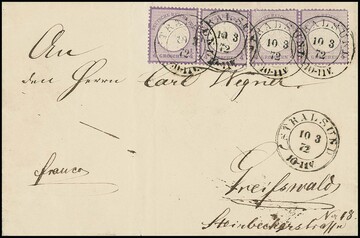 STRALSUND
10 3
72
10-11V.
STRALSUND
10 3
72
10-11V.
An
den Herrn Carl Wegner.
STRALSUND
10 3
72
10-11V.
franco
Greifswald
Steinbeckerstrasse
No 18.